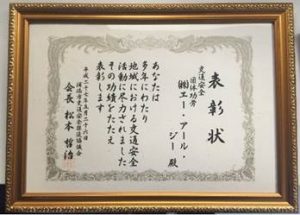 表彰状
交通安全
団体功労
㈱エー・アール・
ジー 殿
あなたは
多年にわたり
地域における交通安全
活動に尽力されました
その功績をたたえ
表彰します
平成二十七年五月二十六日
浦添市交通安全推進協議会
会長 松本哲治